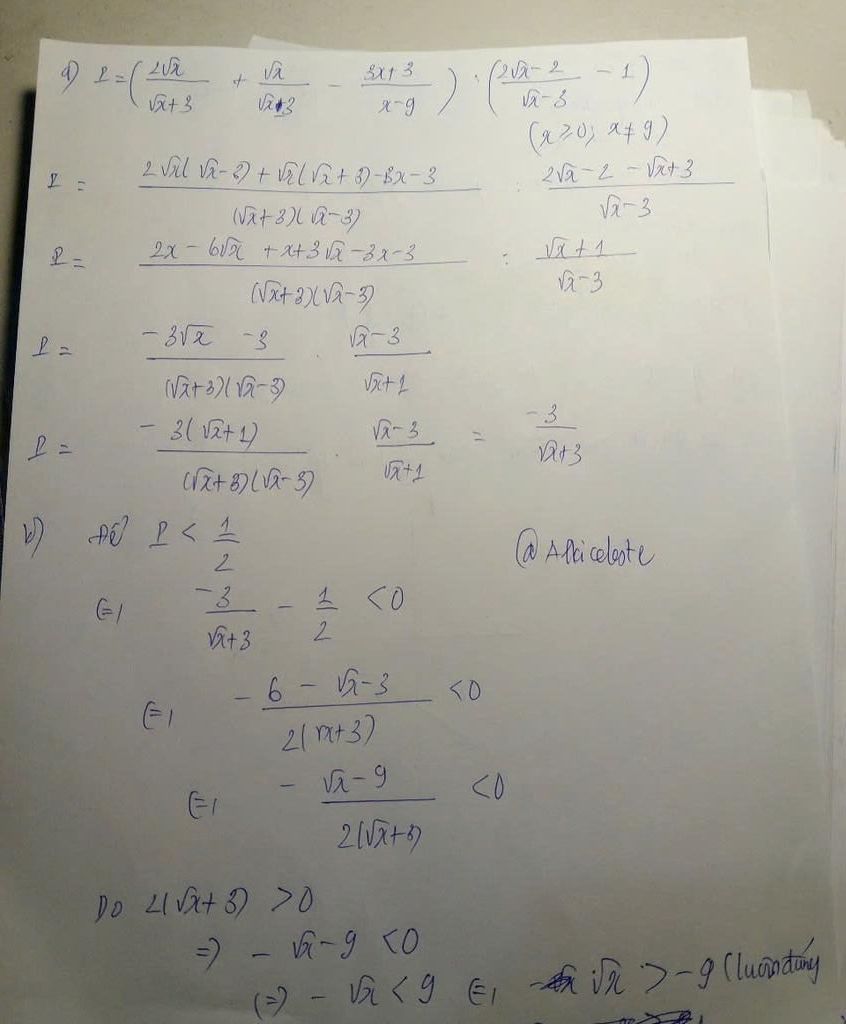 a) P = ( 2√x / √x+3 + √x / √x-3 − 3x+3 / x-9 ) : ( 2√x - 2 / √x-3 − 1 )
(x ≥ 0; x ≠ 9)
P = 2√x(√x-3) + √x(√x+3) - 3x - 3 / (√x+3)(√x-3) : 2√x - 2 - √x + 3 / √x-3
P = 2x - 6√x + x + 3√x - 3x - 3 / (√x+3)(√x-3) : √x+1 / √x-3
P = -3√x - 3 / (√x+3)(√x-3) . √x-3 / √x+1
P = -3(√x+1) / (√x+3)(√x-3) . √x-3 / √x+1 = -3 / √x+3
b) Để P < 1/2
@Alciceleste
(=) -3 / √x+3 - 1/2 < 0
(=) -6 - √x - 3 / 2(√x+3) < 0
(=) -√x - 9 / 2(√x+3) < 0
Do 2(√x+3) > 0
=) -√x - 9 < 0
(=) -√x < 9 (=) √x > -9 (luôn đúng